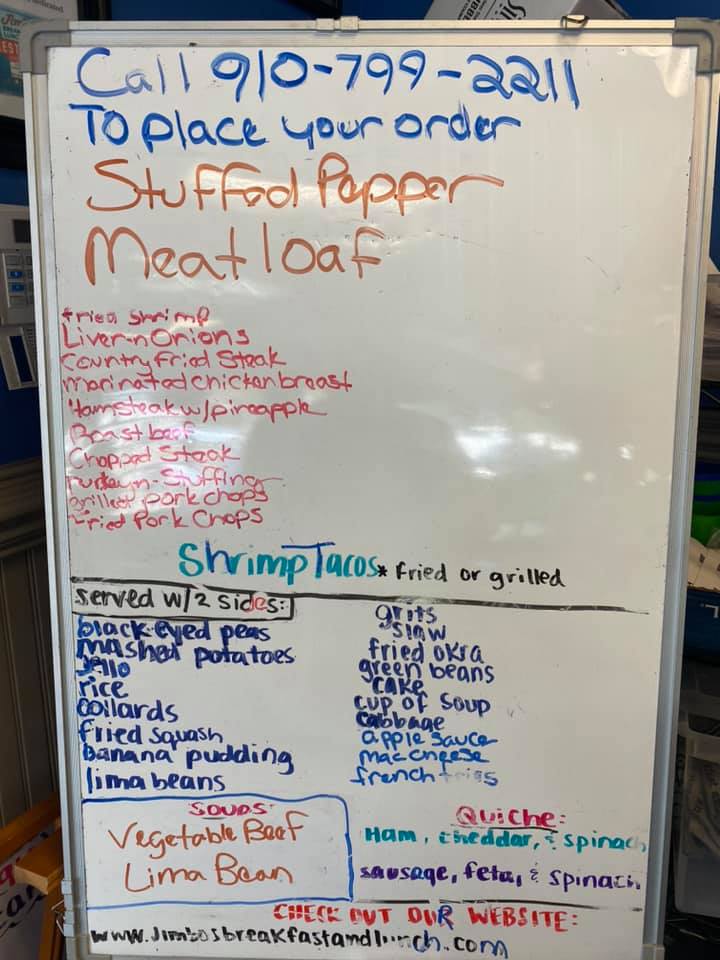 Call 910-799-2211
To place your order
Stuffed Pepper
Meatloaf
fried shrimp
Liver-n-Onions
Country Fried Steak
marinated chicken breast
Hamsteak w/pineapple
Roast beef
Chopped Steak
Turkey-n-Stuffing
grilled pork chops
Fried Pork Chops
Shrimp Tacos * fried or grilled
served w/2 sides:
black eyed peas
mashed potatoes
Jello
rice
collards
fried squash
banana pudding
lima beans
grits
slaw
fried okra
green beans
cake
cup of soup
cabbage
apple sauce
mac cheese
french fries
SOUPS
Vegetable Beef
Lima Bean
Quiche:
Ham, cheddar, & spinach
sausage, feta, & spinach
CHECK OUT OUR WEBSITE:
www.Jimbosbreakfastandlunch.com